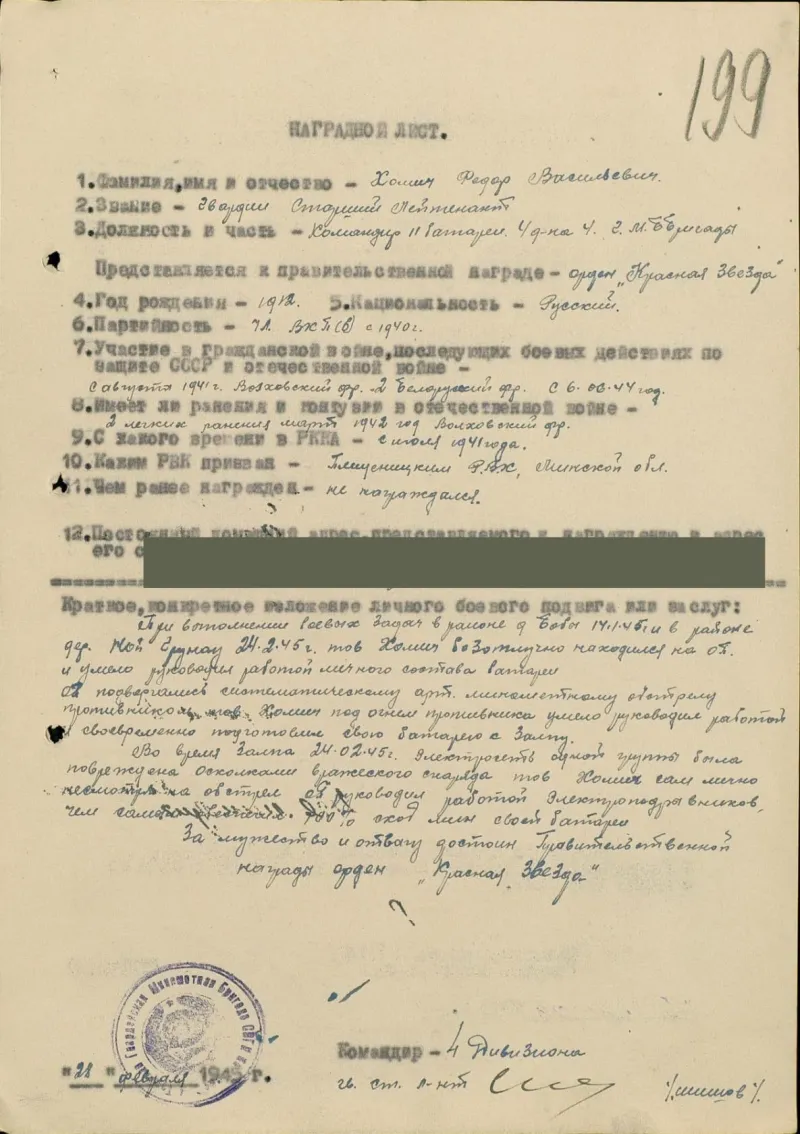 199
НАГРАДНОЙ ЛИСТ.
1. Фамилия, имя и отчество – Хомич Федор Васильевич.
2. Звание – Гвардии Старший Лейтенант
3. Должность и часть – Командир 11 батареи 4 д-на 4. Г. М. Бригады
Представляется к правительственной награде – орден „Красная Звезда"
4. Год рождения – 1912. 5. Национальность – Русский.
6. Партийность – Чл. ВКП(б) с 1940г.
7. Участие в гражданской войне, последующих боевых действиях по
защите СССР и отечественной войне –
с августа 1941г. Волховский фр. 2 Белорусский фр. С 6.06.44 год.
8. Имеет ли ранения и контузии в отечественной войне –
2 легких ранения март 1942 год Волховский фр.
9. С какого времени в РККА – с июля 1941 года.
10. Каким РВК призван – Р.В.К, Минской обл.
11. Чем ранее награжден – не награждался.
12. Постоянный домашний адрес представляемого к награждению и адрес
его с
Краткое, конкретное изложение личного боевого подвига или заслуг:
При выполнении боевых задач в районе д 14.1.45г и в районе
дер. Ной Грунау 24.2.45г. тов Хомич безотлучно находился на ОП.
и умело руководил работой личного состава батареи
ОП подвергались систематическому арт. минометному обстрелу
противником тов. Хомич под огнем противника умело руководил работой
и своевременно подготовил свою батарею к Залпу.
Во время Залпа 24.02.45г. Электросеть одной группы была
повреждена осколками вражеского снаряда тов Хомич сам лично
несмотря на обстрел ОП руководил работой Электроподрывников,
чем 100% сход мин своей батареи
За мужество и отвагу достоин Правительственной
награды орден „Красная Звезда"
?
Гвардейская Минометная Бригада
"28" февраля 1945 г.
Командир – 4 Дивизиона
гв. ст. л-нт